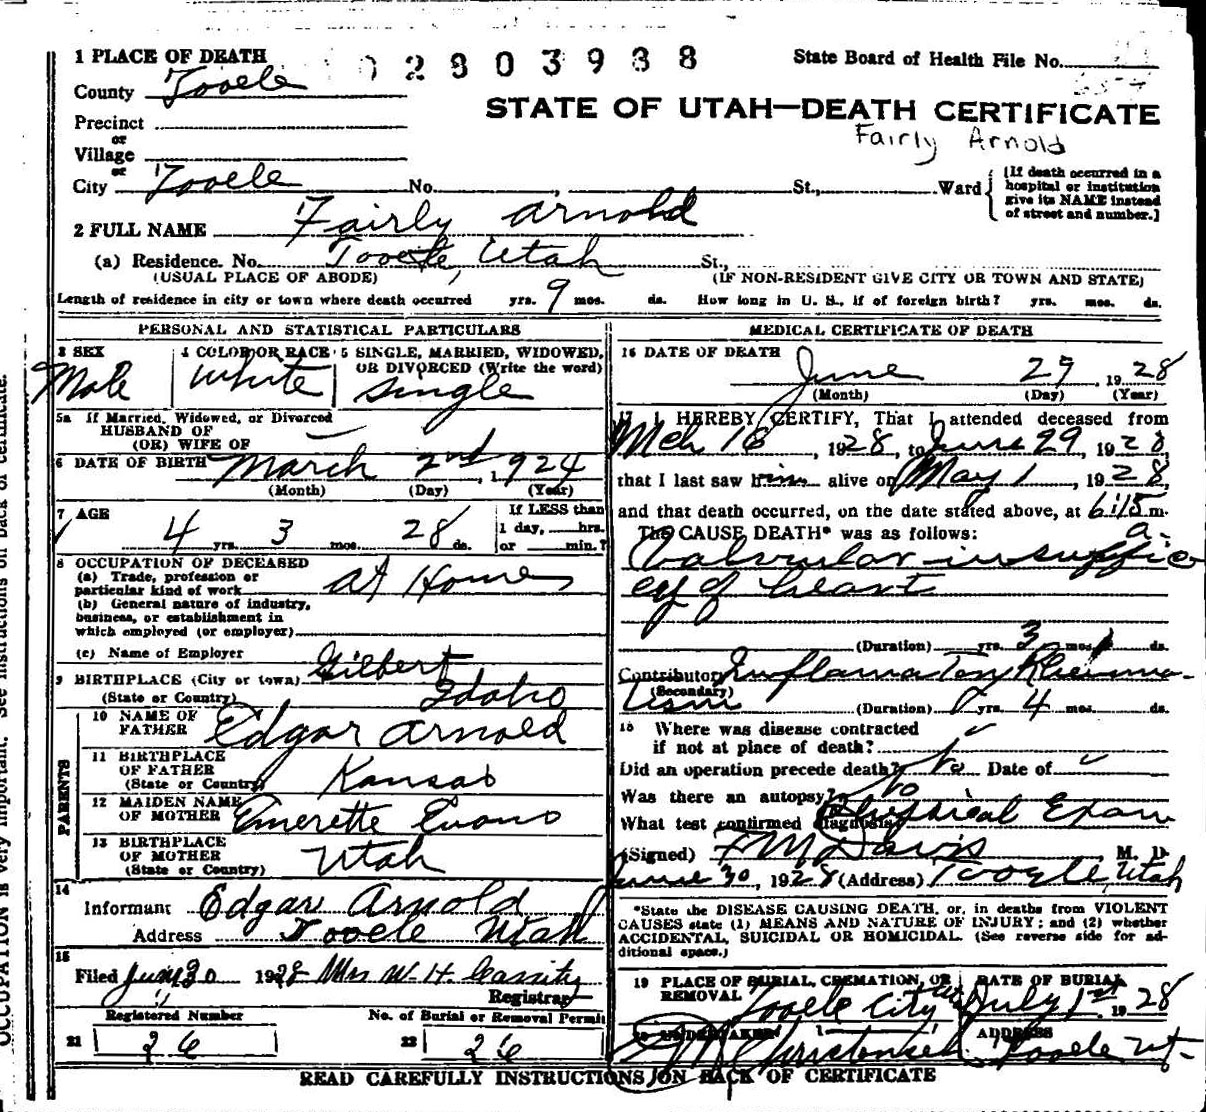 1 PLACE OF DEATH
02803938
State Board of Health File No.
County Tooele
STATE OF UTAH—DEATH CERTIFICATE
Precinct
Fairly Arnold
or
Village
or
City Tooele No. , St., Ward
[If death occurred in a hospital or institution give its NAME instead of street and number.]
2 FULL NAME Fairly Arnold
(a) Residence. No. Tooele, Utah St.,
(USUAL PLACE OF ABODE) (IF NON-RESIDENT GIVE CITY OR TOWN AND STATE)
Length of residence in city or town where death occurred yrs. 9 mos. ds. How long in U. S., if of foreign birth? yrs. mos. ds.
PERSONAL AND STATISTICAL PARTICULARS
3 SEX
Male
4 COLOR OR RACE
White
5 SINGLE, MARRIED, WIDOWED,
OR DIVORCED (Write the word)
Single
5a If Married, Widowed, or Divorced
HUSBAND OF
(OR) WIFE OF
6 DATE OF BIRTH March 2nd, 1924
(Month) (Day) (Year)
7 AGE
4 yrs. 3 mos. 28 ds.
If LESS than
1 day, hrs.
or min.?
8 OCCUPATION OF DECEASED
(a) Trade, profession or
particular kind of work at Home
(b) General nature of industry,
business, or establishment in
which employed (or employer)
(c) Name of Employer
9 BIRTHPLACE (City or town) Gilbert
(State or Country) Idaho
PARENTS
10 NAME OF
FATHER Edgar Arnold
11 BIRTHPLACE
OF FATHER
(State or Country) Kansas
12 MAIDEN NAME
OF MOTHER Emerette Evans
13 BIRTHPLACE
OF MOTHER
(State or Country) Utah
14
Informant Edgar Arnold
Address Tooele Utah
15
Filed June 30 1928 Mrs W. H. Cassity
Registrar
Registered Number No. of Burial or Removal Permit
21 26 22 26
MEDICAL CERTIFICATE OF DEATH
16 DATE OF DEATH
June 29, 1928
(Month) (Day) (Year)
17 I HEREBY CERTIFY, That I attended deceased from
Mch 16, 1928, to June 29, 1928,
that I last saw him alive on May 1, 1928,
and that death occurred, on the date stated above, at 6:15 m.
a.
The CAUSE DEATH* was as follows:
Valvular insuffici
cy of heart
(Duration) yrs. 3 mos. ds.
Contributory Inflamatory Rheuma-
(Secondary)
tism (Duration) 4 mos. ds.
18 Where was disease contracted
if not at place of death?
Did an operation precede death? No Date of
Was there an autopsy? No
What test confirmed diagnosis? Physical Exam
(Signed) F M Davis M. D.
June 30, 1928 (Address) Tooele, Utah
*State the DISEASE CAUSING DEATH, or, in deaths from VIOLENT
CAUSES state (1) MEANS AND NATURE OF INJURY; and (2) whether
ACCIDENTAL, SUICIDAL OR HOMICIDAL. (See reverse side for ad-
ditional space.)
19 PLACE OF BURIAL, CREMATION, OR
REMOVAL Tooele City Ut
DATE OF BURIAL
July 1st 1928
20 UNDERTAKER ADDRESS
Christensen Tooele Ut-
READ CAREFULLY INSTRUCTIONS ON BACK OF CERTIFICATE
OCCUPATION is very important. See instructions on back of certificate.